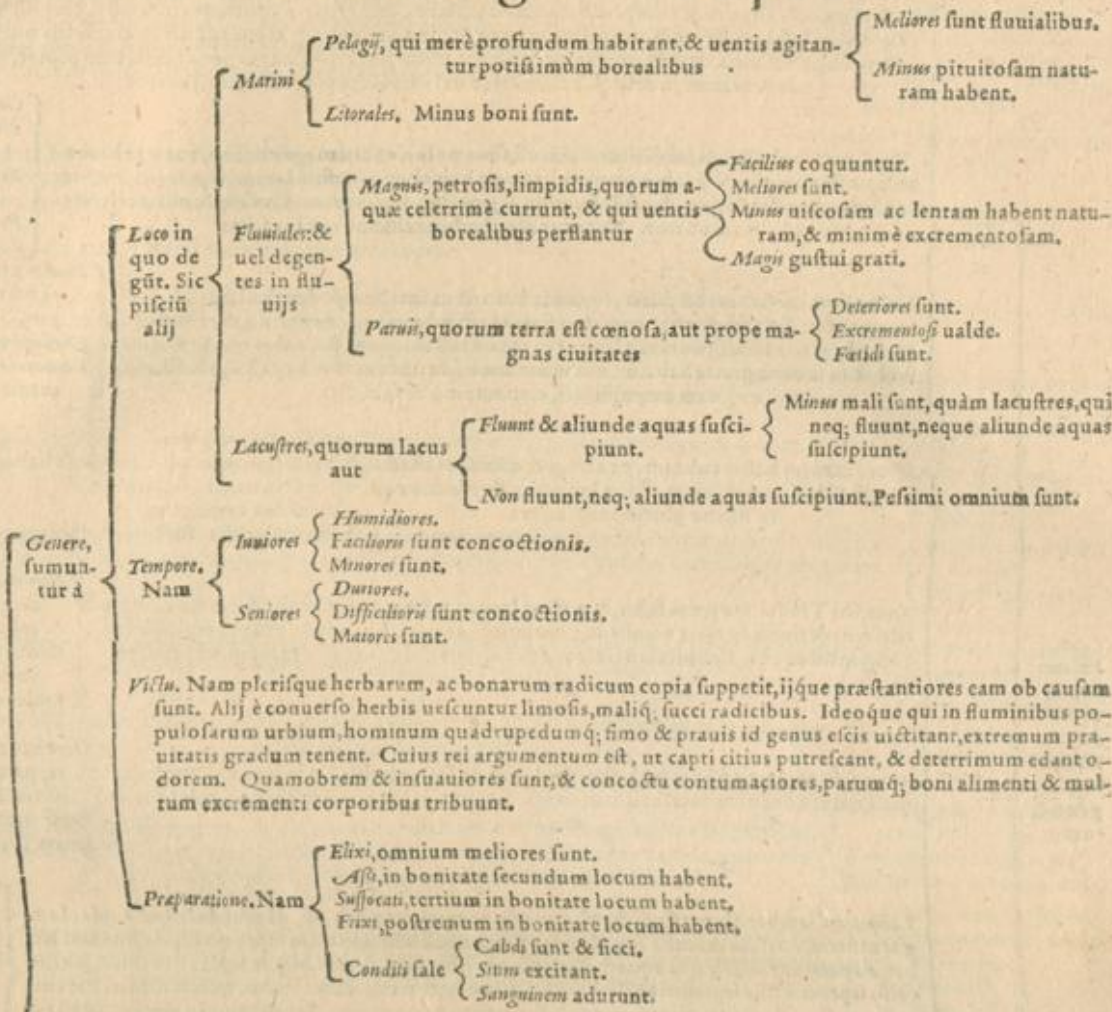 Meliores ſunt fluuialibus.
Pelagij, qui merè profundum habitant, & uentis agitan-
tur potiſsimùm borealibus
Minus pituitoſam natu-
ram habent.
Marini
Litorales. Minus boni ſunt.
Facilius coquuntur.
Magnis, petroſis, limpidis, quorum a-
quæ celerrimè currunt, & qui uentis
borealibus perflantur
Meliores ſunt.
Minus uiſcoſam ac lentam habent natu-
ram, & minimè excrementoſam.
Magis guſtui grati.
Loco in
quo de
gūt. Sic
piſciū
alij
Fluuiales: &
uel degen-
tes in flu-
uijs
Paruis, quorum terra eſt cœnoſa, aut prope ma-
gnas ciuitates
Deteriores ſunt.
Excrementoſi ualde.
Fœtidi ſunt.
Lacuſtres, quorum lacus
aut
Fluunt & aliunde aquas ſuſci-
piunt.
Minus mali ſunt, quàm lacuſtres, qui
neq; fluunt, neque aliunde aquas
ſuſcipiunt.
Non fluunt, neq; aliunde aquas ſuſcipiunt. Peſsimi omnium ſunt.
Genere,
ſumun-
tur à
Tempore.
Nam
Iuniores
Humidiores.
Facilioris ſunt concoctionis.
Minores ſunt.
Seniores
Duriores.
Difficilioris ſunt concoctionis.
Maiores ſunt.
Victu. Nam pleriſque herbarum, ac bonarum radicum copia ſuppetit, ijque præſtantiores eam ob cauſam
ſunt. Alij è conuerſo herbis ueſcuntur limoſis, maliq; ſucci radicibus. Ideoque qui in fluminibus po-
puloſarum urbium, hominum quadrupedumq; fimo & prauis id genus eſcis uictitant, extremum pra-
uitatis gradum tenent. Cuius rei argumentum eſt, ut capti citius putreſcant, & deterrimum edant o-
dorem. Quamobrem & inſuauiores ſunt, & concoctu contumaciores, parumq; boni alimenti & mul-
tum excrementi corporibus tribuunt.
Præparatione. Nam
Elixi, omnium meliores ſunt.
Aſsi, in bonitate ſecundum locum habent.
Suffocati, tertium in bonitate locum habent.
Frixi, poſtremum in bonitate locum habent.
Conditi ſale
Calidi ſunt & ſicci.
Sitim excitant.
Sanguinem adurunt.